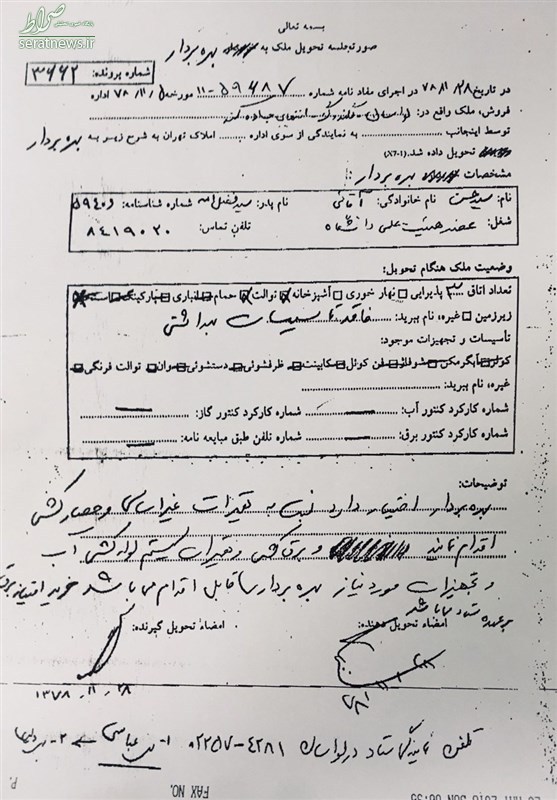 صراط
پایگاه خبری تحلیلی
seratnews.ir
بسمه تعالی
صورتجلسه تحویل ملک به بهره بردار
شماره پرونده: ۳۶۶۲
در تاریخ ۷۸/۱۱/۲۸ در اجرای مفاد نامه شماره ۵۹۴۸۷-۱۱ مورخه ۷۸/۱۱/۲۵ اداره
فروش، ملک واقع در: لواسانات
توسط اینجانب به نمایندگی از سوی اداره املاک تهران به شرح زیر به بهره بردار
تحویل داده شد.
مشخصات بهره بردار:
نام: سید حسن نام خانوادگی: آقائی نام پدر: شماره شناسنامه: ۵۹۴۰۶
شغل: عضو هیئت علمی دانشگاه تلفن تماس: ۸۴۱۹۰۲۰
وضعیت ملک هنگام تحویل:
تعداد اتاق ۳ پذیرایی نهار خوری آشپزخانه توالت حمام انباری پارکینگ
زیرزمین غیره، نام ببرید: فاقد تأسیسات بهداشتی
تأسیسات و تجهیزات موجود:
کولر آبگرمکن شوفاژ فن کوئل کابینت ظرفشوئی دستشوئی وان توالت فرنگی
غیره، نام ببرید:
شماره کارکرد کنتور آب: شماره کارکرد کنتور گاز:
شماره کارکرد کنتور برق: شماره تلفن طبق مبایعه نامه:
توضیحات:
بهره بردار اختیار دارد نسبت به تغییرات غیراساسی و حصارکشی
اقدام نماید و برق کشی و تعمیرات سیستم لوله کشی آب
و تجهیزات مورد نیاز بهره بردار قابل اقدام میباشد خرید امتیاز برق
بر عهده ستاد میباشد
امضاء تحویل دهنده: امضاء تحویل گیرنده:
۱۳۷۸/۱۱/۲۸
تلفن نمایندگی ستاد در لواسان ۴۲۸۱-۰۲۲۵۷ ۱- عباسی ۲-
FAX NO.
P.